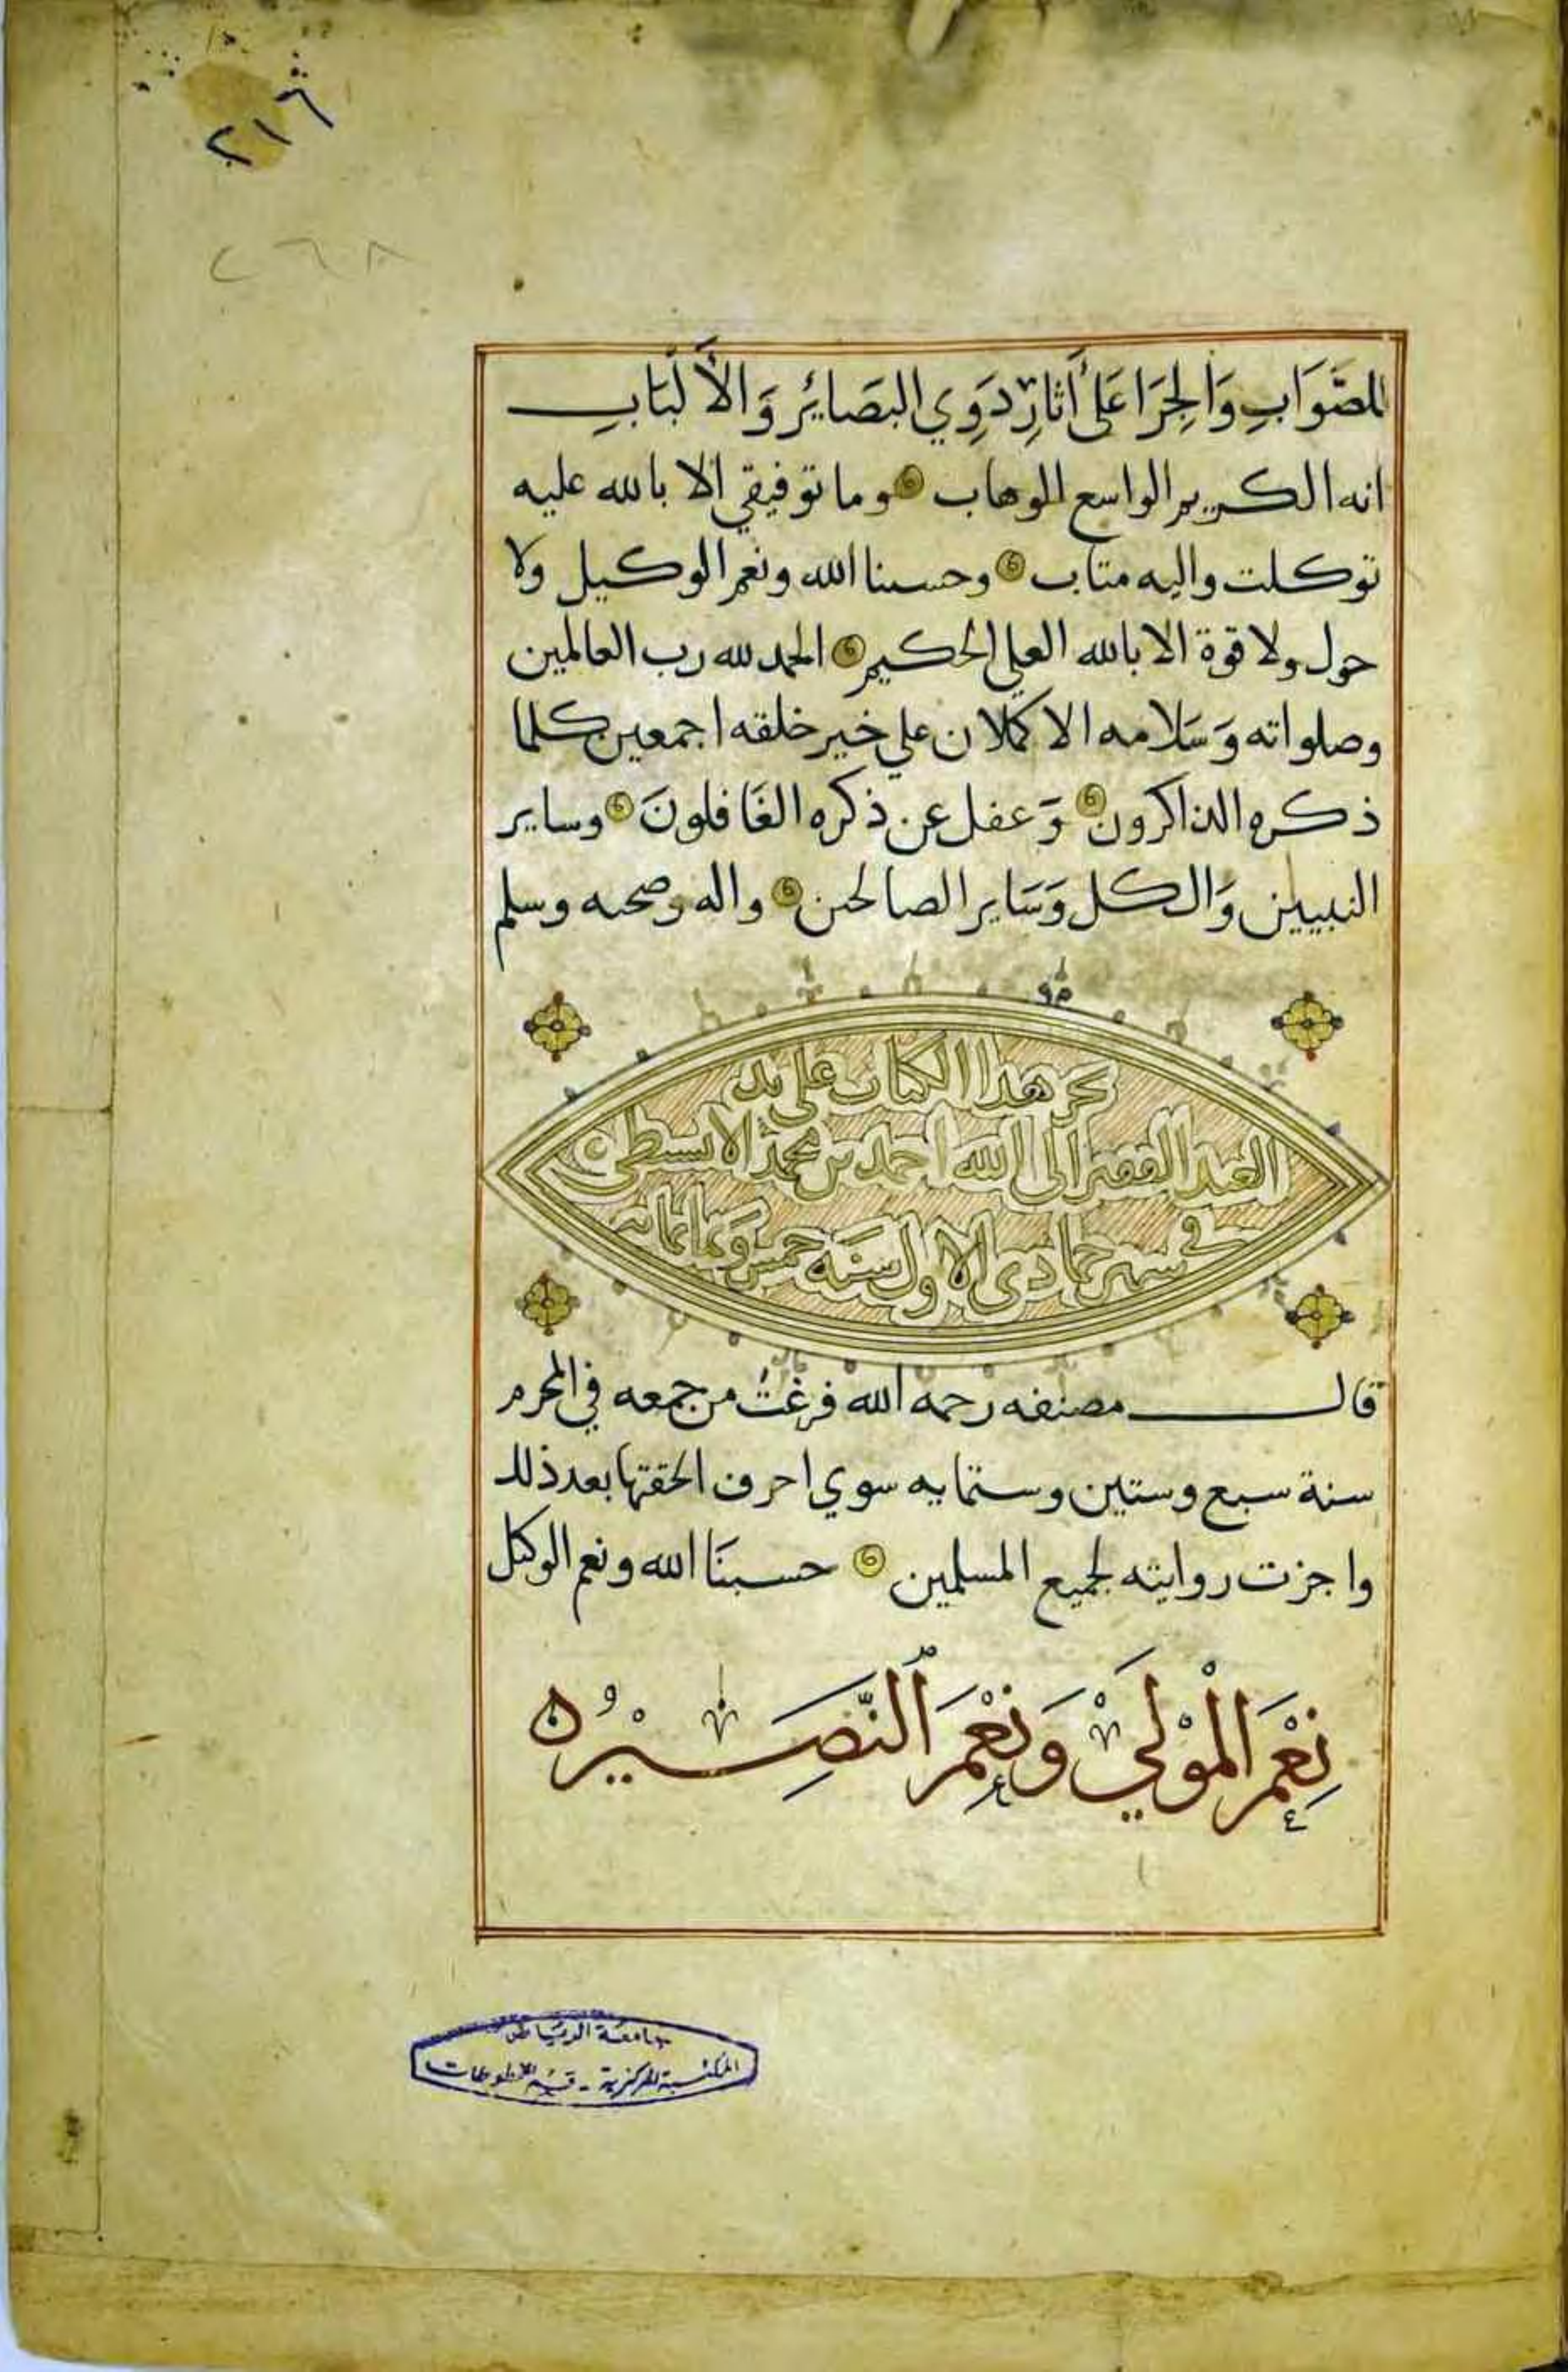 ٢١٦
٢٦٨
للصَّوَابِ وَالجِرَا عَلَى أَثَارِ ذَوِي البَصَائِرِ وَالأَلبَابِ
انه الكريم الواسع الوهاب وما توفيقي الا بالله عليه
توكلت واليه متاب وحسبنا الله ونعم الوكيل ولا
حول ولا قوة الا بالله العلي الحكيم الحمد لله رب العالمين
وصلواته وَسَلامه الاكملان علي خير خلقه اجمعين كلما
ذكره الذاكرون وَغفل عن ذكره الغَافلونَ وساير
النبيين وَال كل وَسَاير الصالحين واله وصحبه وسلم
نجز هذا الكتاب على يد
العبد الفقير الى الله احمد بن محمد
في شهر جمادى الاول سنة خمس وثمانمائه
قال مصنفه رحمه الله فرغتُ من جمعه في المحرم
سنة سبع وستين وستمايه سوي احرف الحقتها بعد ذلك
واجزت روايته لجميع المسلمين حسبنَا الله ونعم الوكيل
نِعْمَ الْمَوْلَيْ وَنِعْمَ النَّصِيْرُ
جامعة الرياض
المكتبة المركزية - قسم المخطوطات